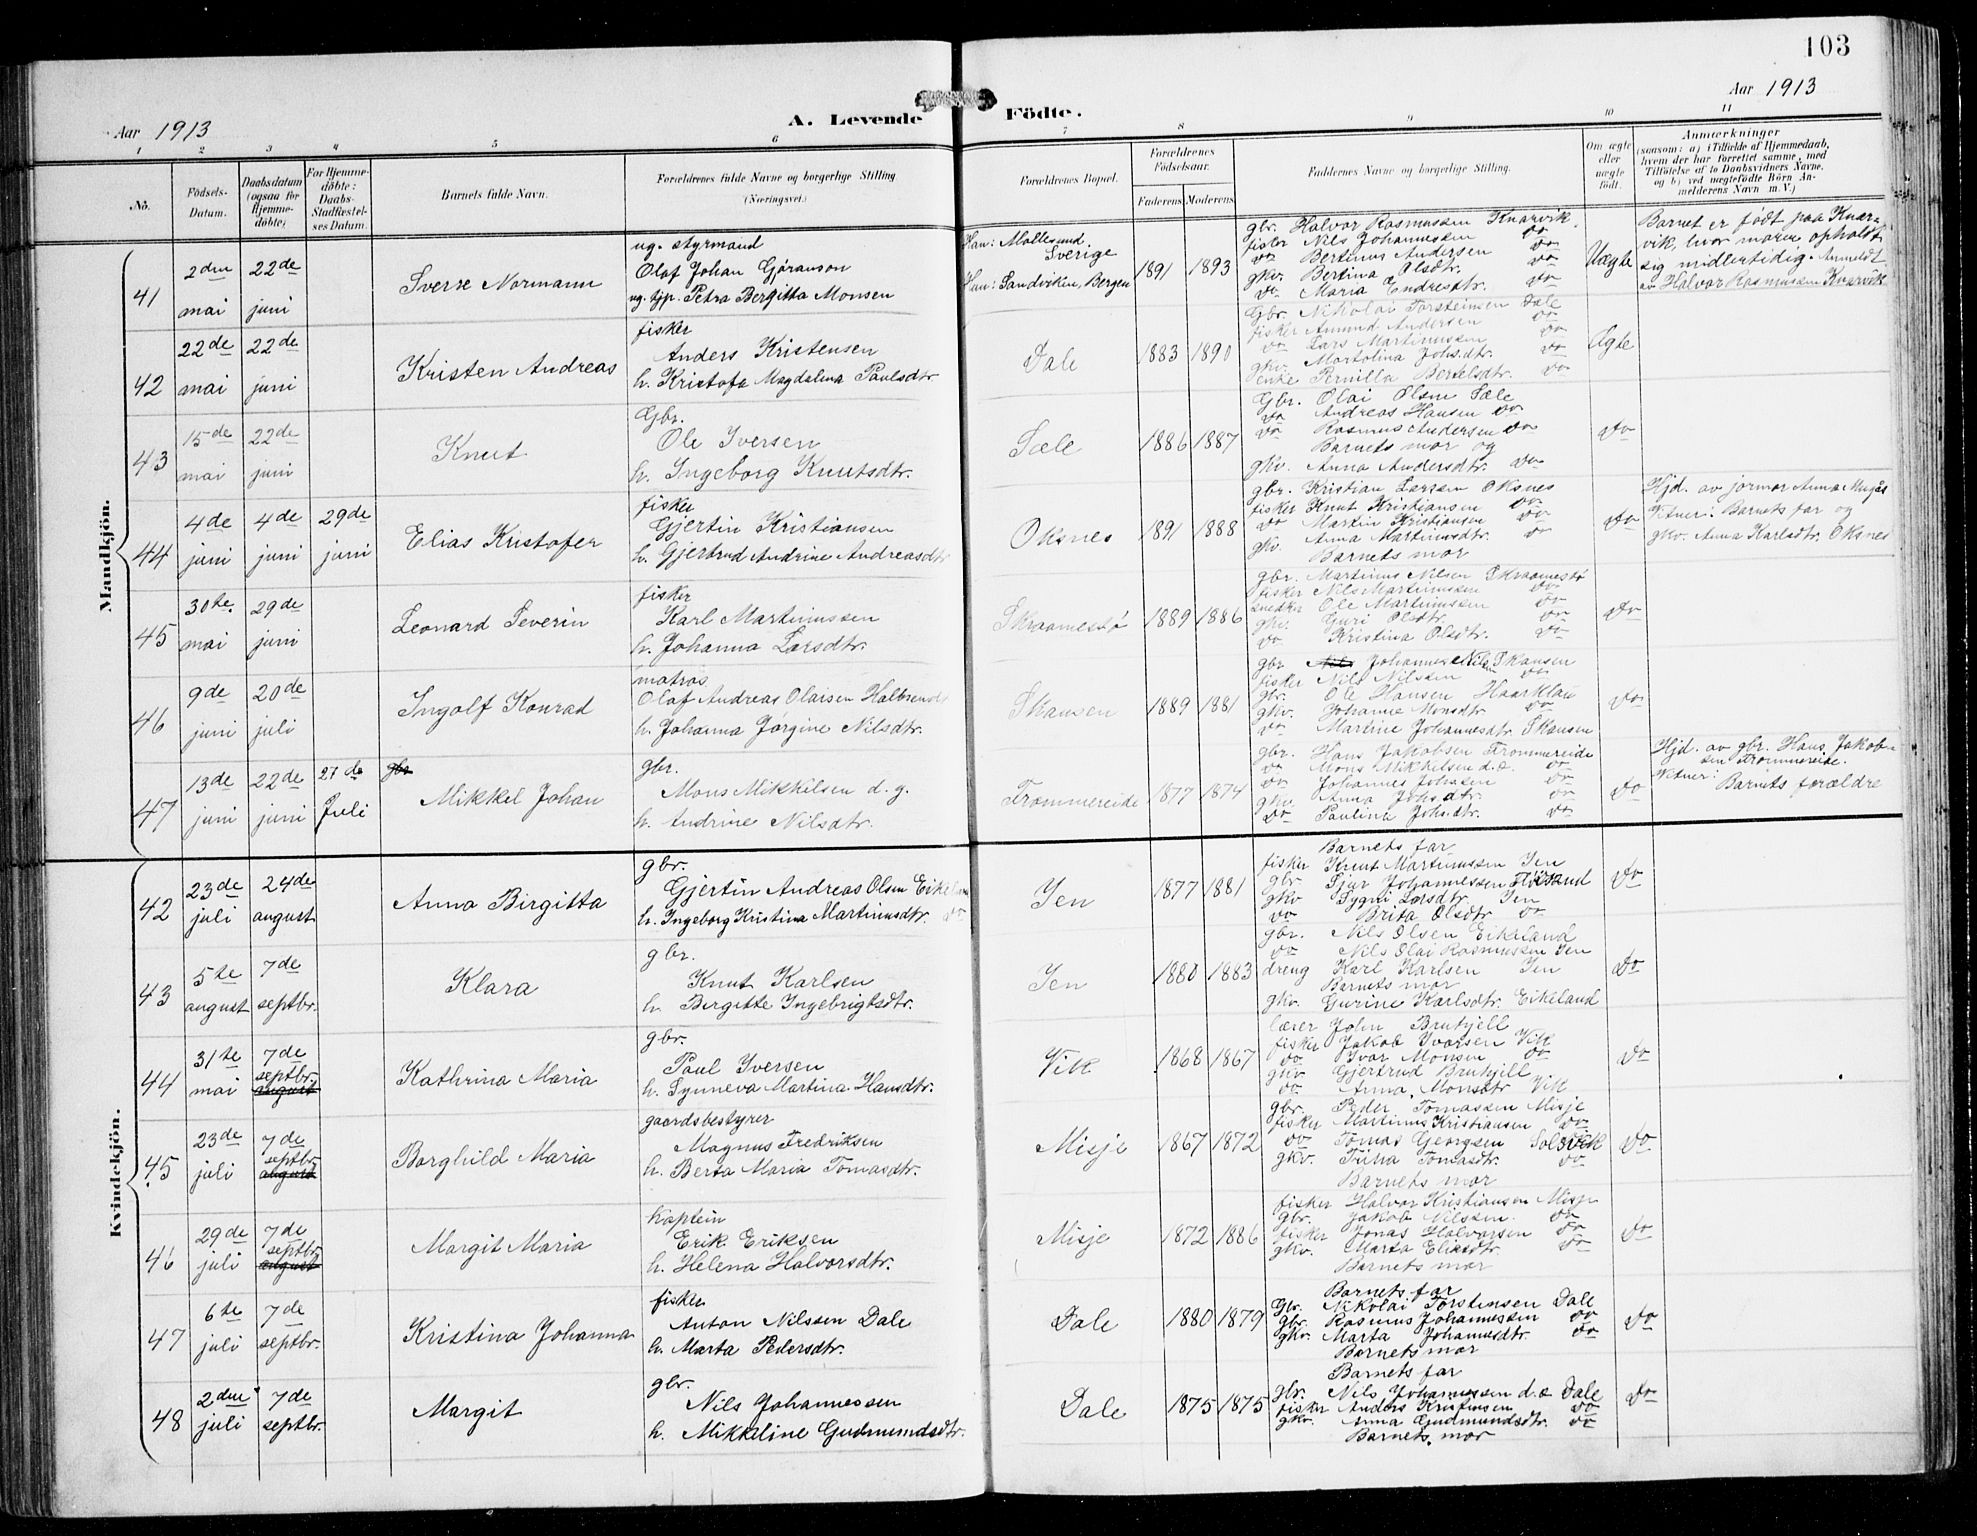 103
Aar 1913
A. Levende Födte.
Aar 1913
1 2 3 4 5 6 7 8 9 10 11
No.
Födsels-Datum.
Daabsdatum (ogsaa for Hjemme-döbte)
For Hjemme-döbte: Daabs-Stadfæstel-ses Datum.
Barnets fulde Navn.
Forældrenes fulde Navne og borgerlige Stilling (Næringsvei.)
Forældrenes Bopæl.
Forældrenes Födselsaar.
Faderens Moderens
Faddernes Navne og borgerlige Stilling.
Om ægte eller uægte født.
Anmærkninger
(saasom: a) i Tilfælde af Hjemmedaab, hvem der har forrettet samme, med Tilføielse af to Daabsvidners Navne, og b) ved uægtefödte Börn Anmelderens Navn m. V.)
Mandkjön.
41
2den mai
22de juni
Sverre Normann
ug. styrmand
Olaf Johan Gjöranson
ug. tjp. Petra Bergitta Monsen
Han: Mollesund Sverige
Hun: Sandviken, Bergen
1891 1893
gbr. Halvor Rasmussen Knarvik
fisker Nils Johannessen do
do Bertinus Andersen do
gkv. Bertina Olsdtr. do
do Maria Endresdtr. do
Uægte
Barnet er født paa Knar-
vik, hvor moren opholdt
sig midlertidig. Anmeldt
av Halvor Rasmussen Knarvik
42
22de mai
22de juni
Kristen Andreas
fisker
Anders Kristensen
h. Kristofa Magdalena Paulsdtr
Dale
1883 1890
Gbr. Nikolai Torsteinsen Dale
fisker Amund Andersen do
do Lars Martinussen do
gkv. Martolina Johs.dtr. do
enke Pernilla Bertelsdtr. do
Ægte
43
15de mai
22de juni
Knut
Gbr.
Ole Iversen
h. Ingeborg Knutsdtr.
Sæle
1886 1887
Gbr. Olai Olsen Sæle
do Andreas Hansen do
do Rasmus Andersen do
Barnets mor og
gkv. Anna Andersdtr. do
do
44
4de juni
4de juni
29de juni
Elias Kristofer
fisker
Gjertin Kristiansen
h. Gjertrud Andrine Andreasdtr
Oksnes
1891 1888
gbr. Kristian Larsen Oksnes
fisker Knut Kristiansen do
do Martin Kristiansen do
gkv. Anna Martinusdtr. do
Barnets mor
do
Hjd. av jormor Anna Mugås
Vitner: Barnets far og
gkv. Anna Karlsdtr. Oksnes
45
30te mai
29de juni
Leonard Severin
fisker
Karl Martinussen
h. Johanna Larsdtr.
Skraamestø
1889 1886
gbr. Martinus Nilsen Skraamestø
fisker Nils Martinussen do
snedker Ole Martinussen do
gkv. Guri Olsdtr. do
do Kristina Olsdtr. do
do
46
9de juni
20de juli
Ingolf Konrad
matros
Olaf Andreas Olaisen
h. Johanna Jørgine Nilsdtr.
Skansen
1889 1881
gbr Johannes Nilsen Skansen
fisker Nils Nilssen do
gbr. Ole Hansen Haarklau
gkv. Johanne Monsdtr do
do Martine Johannesdtr Skansen
do
47
13de juni
22de juni
27de Juli
gbr
Mikkel Johan
gbr.
Mons Mikkelsen d. y.
h. Andrine Nilsdtr.
Trommereide
1877 1874
gbr. Hans Jakobsen Trommereide
do Mons Mikkelsen d.æ. do
do Johannes Johnsen do
gkv. Anna Johsdtr. do
do Paulina Johs.dtr. do
do
Hjd. av gbr. Hans Jakob-
sen Trommereide.
Vitner: Barnets forældre
Kvindekjön.
42
23de juli
24de august
Anna Birgitta
gbr.
Gjertin Andreas Olsen Eikeland
h. Ingeborg Kristina Martinusdtr. do
Jen
1877 1881
Barnets far
fisker Knut Martinussen Jen
gbr Sjur Johannessen
gkv Sygni Larsdtr. Jen
do Brita Olsdtr do
do
43
5te august
7de septbr.
Klara
gbr.
Knut Karlsen
h. Birgitte Ingebrigtsdtr.
Jen
1880 1883
gbr. Nils Olsen Eikeland
do Nils Olai Rasmussen Jen
dreng Karl Karlsen Jen
Barnets mor
gkv. Gurine Karlsdtr. Eikeland
do
44
31te mai
7de septbr. august
Kathrina Maria
gbr.
Paul Iversen
h. Synneva Martina Hansdtr.
Vik
1868 1867
lærer John Brutjell
fisker Jakob Ivarsen Vik
do Ivar Monsen do
gkv Gjertrud Brutjell
do Anna Monsdtr Vik
do
45
23de juli
7de septbr august
Borghild Maria
gaardsbestyrer
Magnus Fredriksen
h. Berta Maria Tomasdtr.
Misje
1867 1872
gbr. Peder Tomassen Misje
fisker Martinus Kristiansen do
do Tomas Georgsen Solsvik
gkv. Trina Tomasdtr. do
Barnets mor
do
46
29de juli
7de septbr august
Margit Maria
Kaptein
Erik Eriksen
h. Helena Halvorsdtr.
Misje
1872 1886
fisker Halvor Kristiansen Misje
gbr. Jakob Nilssen do
fisker Jonas Halvorsen do
gkv. Marta Eliasdtr do
Barnets mor
do
47
6te juli
7de septbr.
Kristina Johanna
fisker
Anton Nilssen Dale
h. Marta Pedersdtr.
Dale
1880 1879
Barnets far
Gbr. Nikolai Torsteinsen Dale
gbr. Rasmus Johannessen do
gkv. Marta Johannesdtr do
Barnets mor
do
48
2den juli
7de septbr.
Margit
gbr.
Nils Johannessen
h. Mikkeline Gudmundsdtr.
Dale
1875 1875
Barnets far
gbr. Nils Johannessen d.æ Dale
fisker Anders Kristensen do
gkv. Anna Gudmundsdtr. do
Barnets mor
do